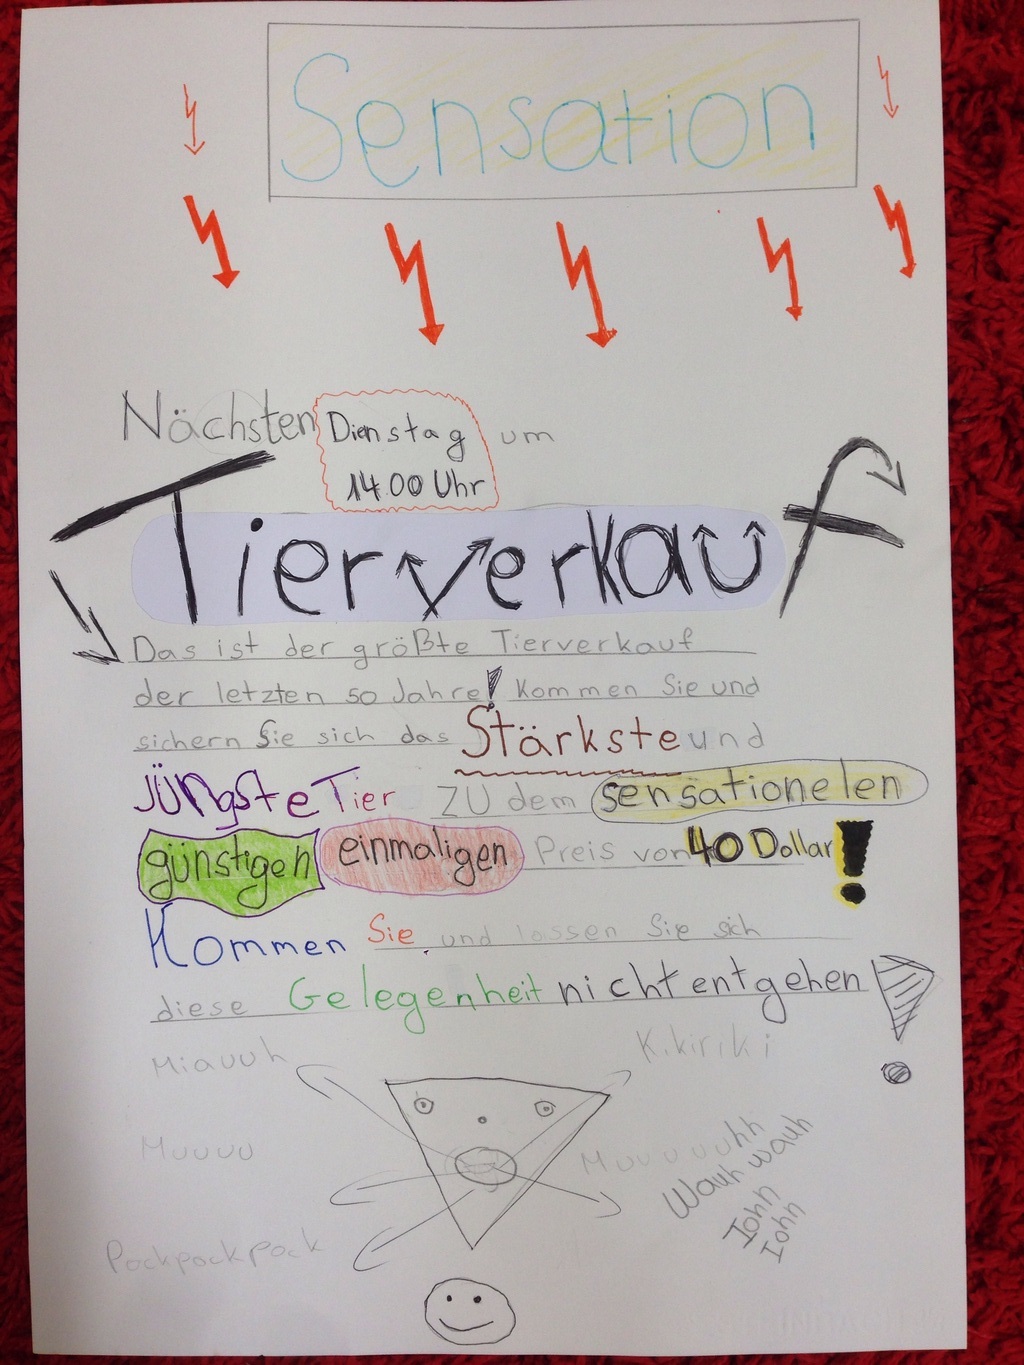 Sensation
Nächsten Dienstag um
14.00 Uhr
Tierverkauf
Das ist der größte Tierverkauf
der letzten 50 Jahre! Kommen Sie und
sichern Sie sich das Stärkste und
jüngste Tier zu dem sensationelen
günstigen einmaligen Preis von 40 Dollar!
Kommen Sie und lassen Sie sich
diese Gelegenheit nicht entgehen!
Miauuh
Kikiriki
Muuuu
Muuuuuhh
Wauh wauh
Iohh
Iohn
Pockpockpock